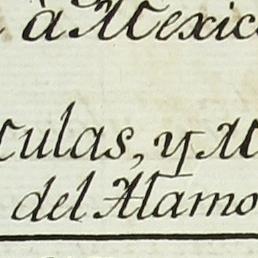 à Mexico
culas, y M
del Alamo